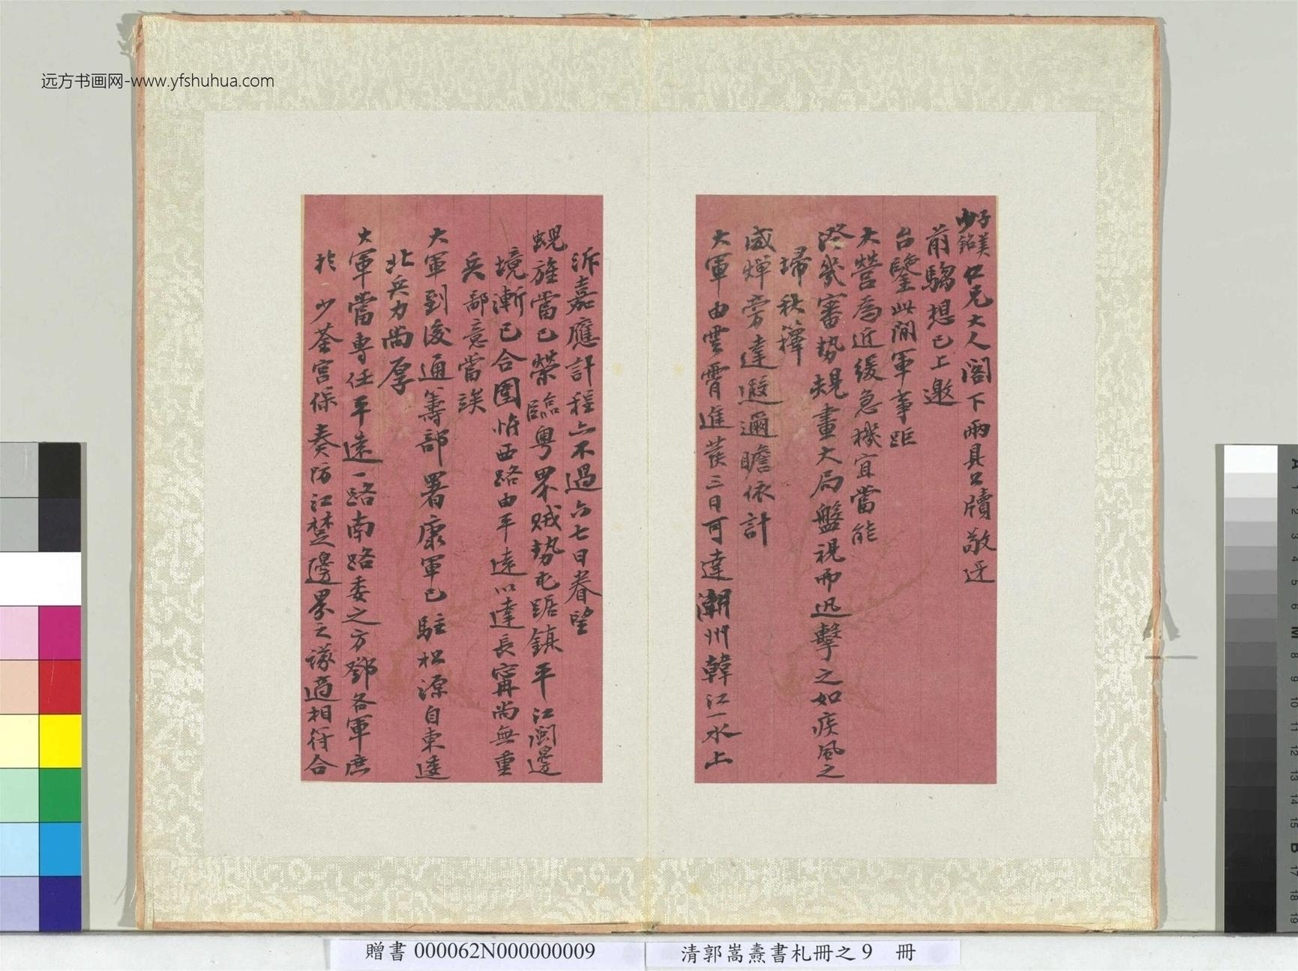 远方书画网-www.yfshuhua.com
子美
少銘
仁兄大人閣下兩具公牘敬迓
前騶想已上邀
台鑒此間軍事距
大營為近緩急機宜當能
審勢規畫大局盤視而迅擊之如疾風之
埽秋籜
威燀旁達遐邇瞻依計
大軍由雲霄進發三日可達潮州韓江一水上
泝嘉應計程亦不過六七日眷望
蜺旌當已榮臨粵界賊勢屯踞鎮平江閩邊
境漸已合圍惟西路由平遠以達長甯尚無重
兵鄙意當俟
大軍到後通籌部署康軍已駐松源自東達
北兵力尚厚
大軍當專任平遠一路南路委之方鄧各軍庶
於 少荃宮保奏防江楚邊界之議適相符合
贈書 000062N000000009
清郭嵩燾書札冊之 9 冊
A 1 2 3 4 5 6 M 8 9 10 11 12 13 14 15 B 17 18 19